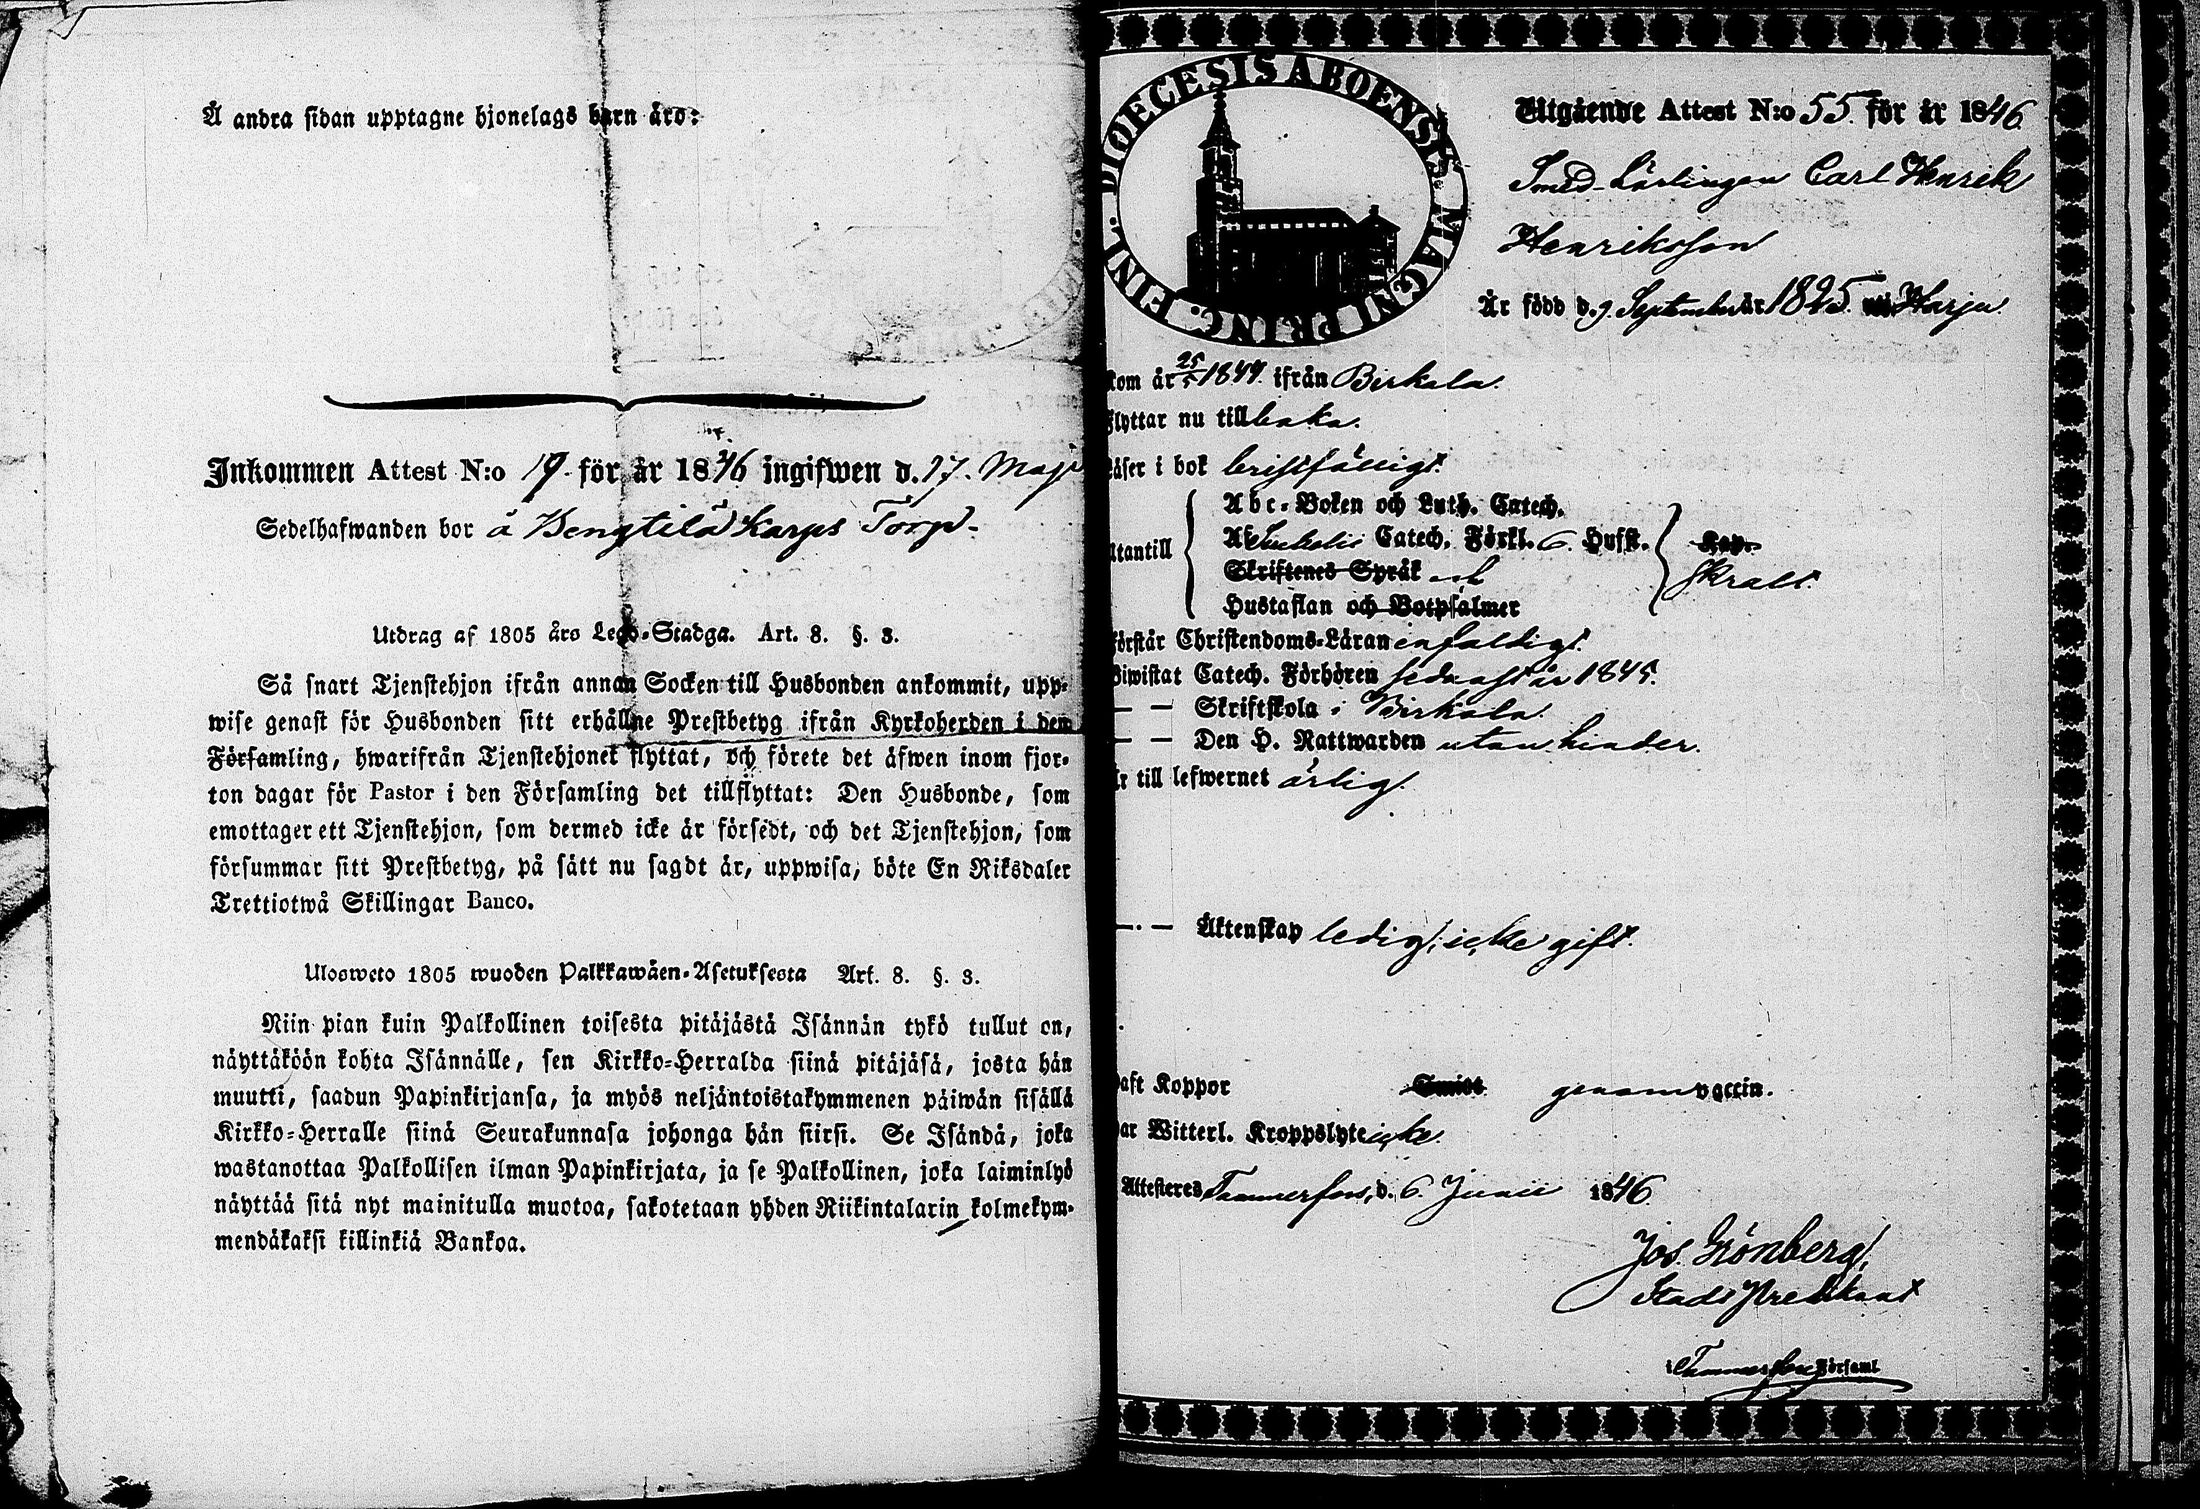 Å andra sidan upptagne hjonelags barn äro:
Inkommen Attest N:o 19. för år 1846 ingifwen d. 17. Maji
Sedelhafwanden bor å Bengtilä Karps Torp.
Utdrag af 1805 års Lego-Stadga. Art. 8. §. 3.
Så snart Tjenstehjon ifrån annan Socken till Husbonden ankommit, upp-
wise genast för Husbonden sitt erhållne Prestbetyg ifrån Kyrkoherden i den
Församling, hwarifrån Tjenstehjonet flyttat, och förete det äfwen inom fjor-
ton dagar för Pastor i den Församling det tillflyttat: Den Husbonde, som
emottager ett Tjenstehjon, som dermed icke är försedt, och det Tjenstehjon, som
försummar sitt Prestbetyg, på sätt nu sagdt är, uppwisa, böte En Riksdaler
Trettiotwå Skillingar Banco.
Ulosweto 1805 wuoden Palkkawäen-Asetuksesta Art. 8. §. 3.
Niin pian kuin Palkollinen toisesta pitäjästä Isännän tykö tullut on,
näyttäköön kohta Isännälle, sen Kirkko-Herralda siinä pitäjäsä, josta hän
muutti, saadun Papinkirjansa, ja myös neljäntoistakymmenen päiwän sisällä
Kirkko-Herralle siinä Seurakunnasa johonga hän siirsi. Se Isändä, joka
wastanottaa Palkollisen ilman Papinkirjata, ja se Palkollinen, joka laiminlyö
näyttää sitä nyt mainitulla muotoa, sakotetaan yhden Riikintalarin kolmekym-
mendäkaksi killinkiä Bankoa.
DIOECESIS ABOENSIS. MAGNI PRINC. FINL.
Utgående Attest N:o 55. för år 1846.
Smed-Lärlingen Carl Henrik
Henriksson
Är född d. 9 September år 1825. Harju.
kom år 25/5 1844. ifrån Birkala.
flyttar nu tillbaka.
Läser i bok bristfälligt.
Abc-Boken och Luth. Catech.
Utantill Af Svebelii Catech. Förkl. 6. Hufst. Kap.
Skriftenes Språk och skralt.
Hustaflan och Botpsalmer
förstår Christendoms-Läran enfaldigt.
Biwistat Catech. Förhören sednast år 1845.
— — Skriftskola i Birkala.
— — Den H. Nattwarden utan hinder.
är till lefwernet ärlig.
— — Äktenskap ledig, icke gift.
haft Koppor genom vaccin.
har Witterl. Kroppslyte icke.
Attesteres Tammerfors, d. 6. Junii 1846.
Jos. Grönberg,
Stads Predikant
i Tammerfors Församl